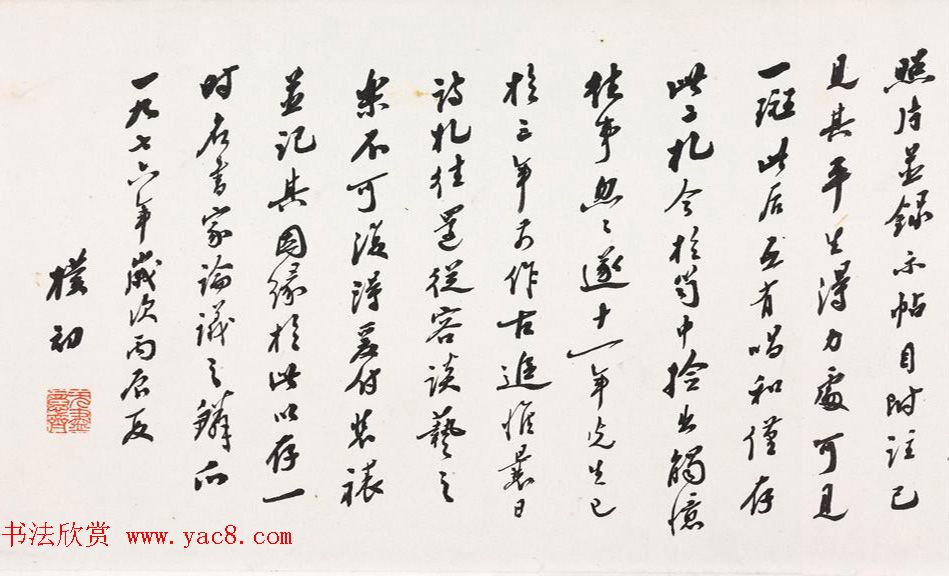 照片並録示帖目附註已
見其平生得力處可見
一斑此后互有唱和僅存
此二札今於笥中捡出觸憶
往事忽〻遂十一年先生已
於三年前作古追惟曩日
詩札往還從容談藝之
樂不可復得爰付装裱
並记其因缘於此以存一
时名書家論議之鱗爪
一九七六年歲次丙辰夏
樸初
书法欣赏 www.yac8.com